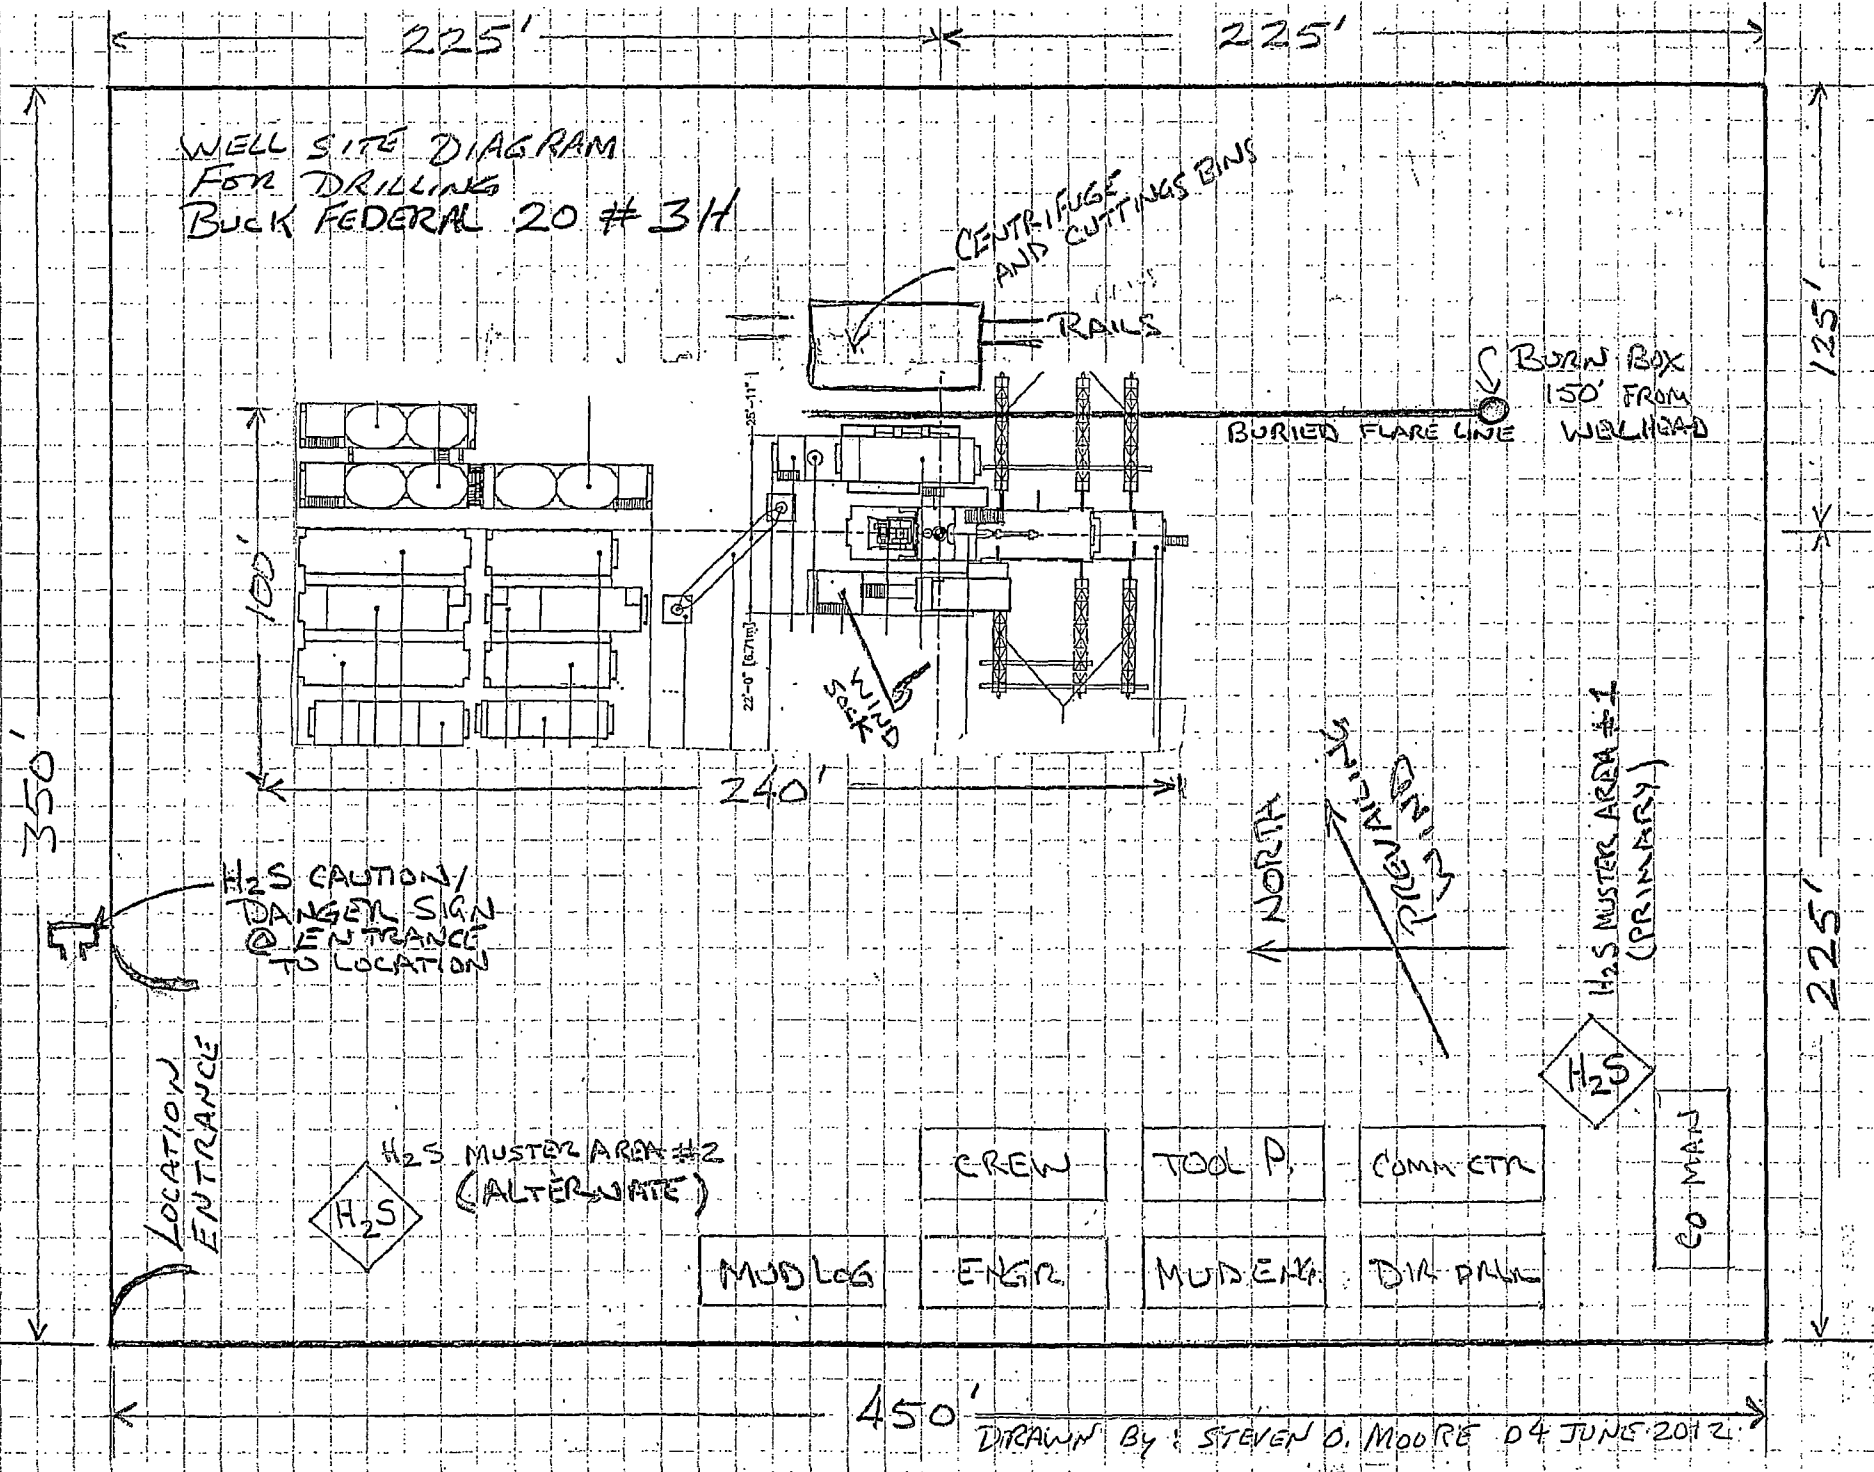 225'
225'
WELL SITE DIAGRAM
FOR DRILLING
BUCK FEDERAL 20 # 3H
CENTRIFUGE
AND CUTTINGS BINS
RAILS
125'
BURN BOX
150' FROM
WELLHEAD
BURIED FLARE LINE
25'-11"
100'
22'-0" [6.71m]
WIND
SOCK
240'
350'
H2S CAUTION/
DANGER SIGN
@ ENTRANCE
TO LOCATION
NORTH
PREVAILING
WIND
H2S MUSTER AREA #1
(PRIMARY)
225'
H2S
LOCATION
ENTRANCE
H2S MUSTER AREA #2
(ALTERNATE)
H2S
CREW
TOOL P.
COMM CTR
CO MAN
MUD LOG
ENGR
MUD ENG.
DIR DRLR
450'
DRAWN BY: STEVEN O. MOORE 04 JUNE 2012